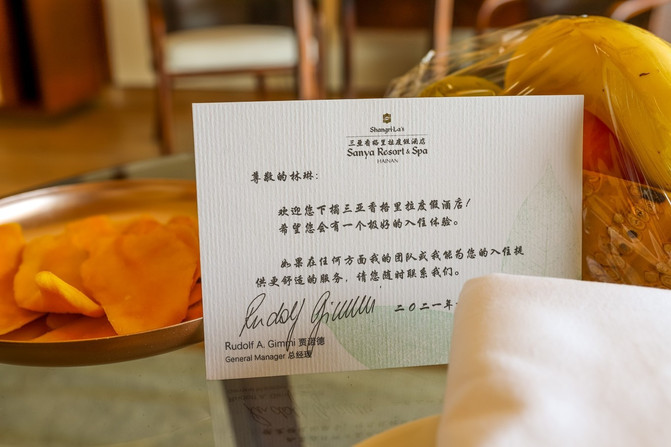 Shangri-La's
三亚香格里拉度假酒店
Sanya Resort & Spa
HAINAN
尊敬的林琳：
欢迎您下榻三亚香格里拉度假酒店！
希望您会有一个极好的入住体验。
如果在任何方面我的团队或我能为您的入住提
供更舒适的服务，请您随时联系我们。
Rudolf Gimmi
二〇二一年
Rudolf A. Gimmi 贾迈德
General Manager 总经理